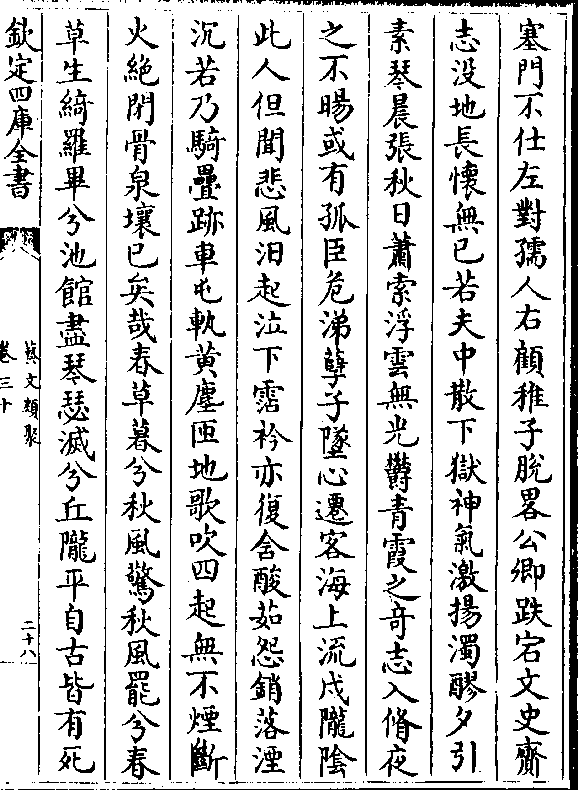 塞門不仕左對孺人右顧稚子脫畧公卿跌宕文史齎
志没地長懷無已若夫中散下獄神氣激揚濁醪夕引
素琴晨張秋日蕭索浮雲無光鬱青霞之竒志入脩夜
之不暘或有孤臣危涕孽子墜心遷客海上流戍隴陰
此人但聞悲風汨起泣下霑衿亦復含酸茹怨銷落湮
沉若乃騎疊跡車屯軌黄塵匝地歌吹四起無不煙斷
火絶閉骨泉壤已矣哉春草暮兮秋風驚秋風罷兮春
草生綺羅畢兮池館盡琴瑟滅兮丘隴平自古皆有死
欽定四庫全書
藝文類聚
卷三十
二十八